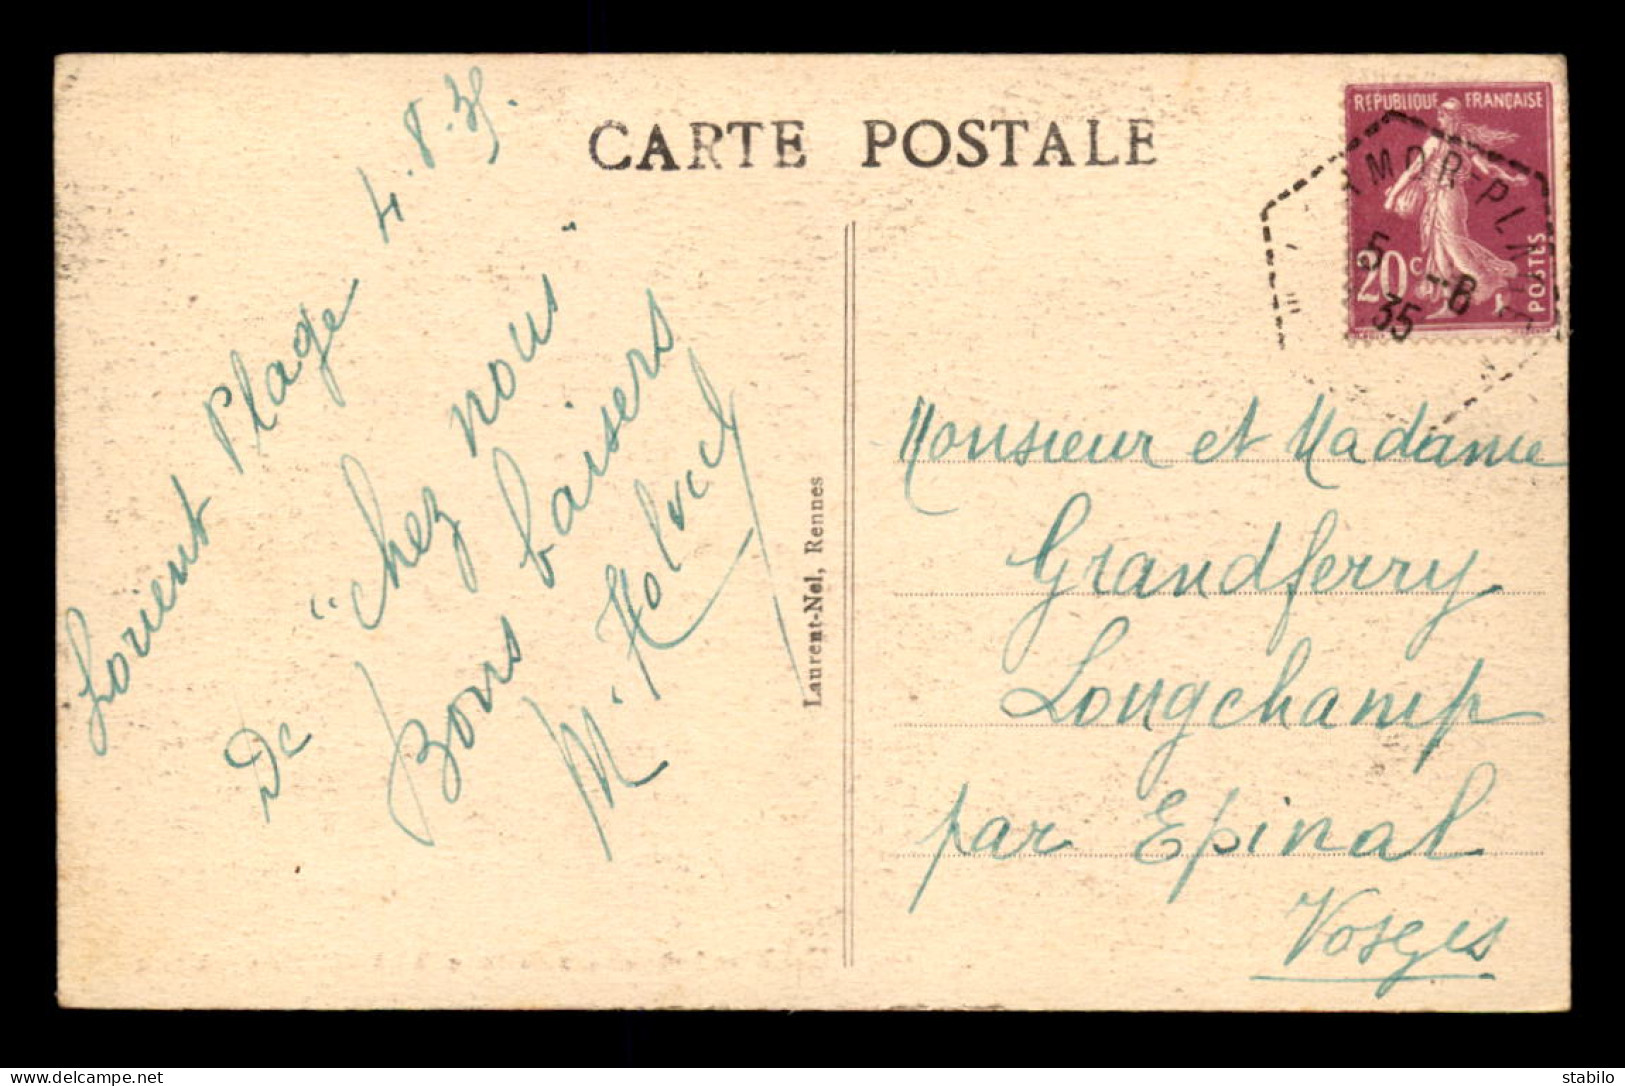 CARTE POSTALE
4.8.35.
Lorient Plage
De "chez nous"
Bons baisers
Laurent-Nel, Rennes
RÉPUBLIQUE FRANÇAISE
20c
POSTES
5 -8
35
Monsieur et Madame
Grandferry
Longchamp
par Epinal
Vosges
delcampe.net
stabilo